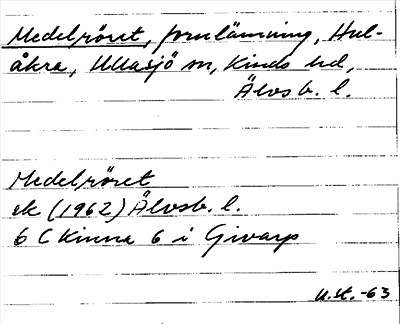 Medelröset, fornlämning, Hul-
åkra, Ullasjö sn, Kinds hd,
Älvsb. l.
Medelröset
ek (1962) Älvsb. l.
6 C Kinna 6 i Givarp
U.st. -63